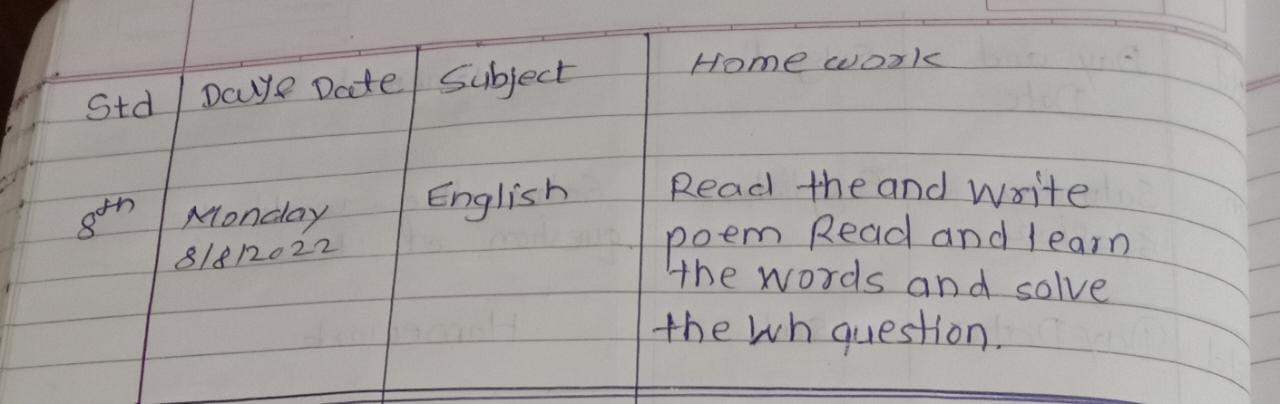 Std Day & Date Subject Home work
8th Monday English Read the and write
8/8/2022 poem Read and learn
the words and solve
the wh question.